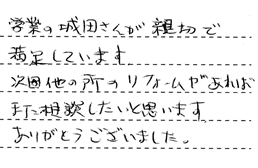 営業の成田さんが親切で
満足しています。
次回他の所のリフォームがあれば
また相談したいと思います。
ありがとうございました。